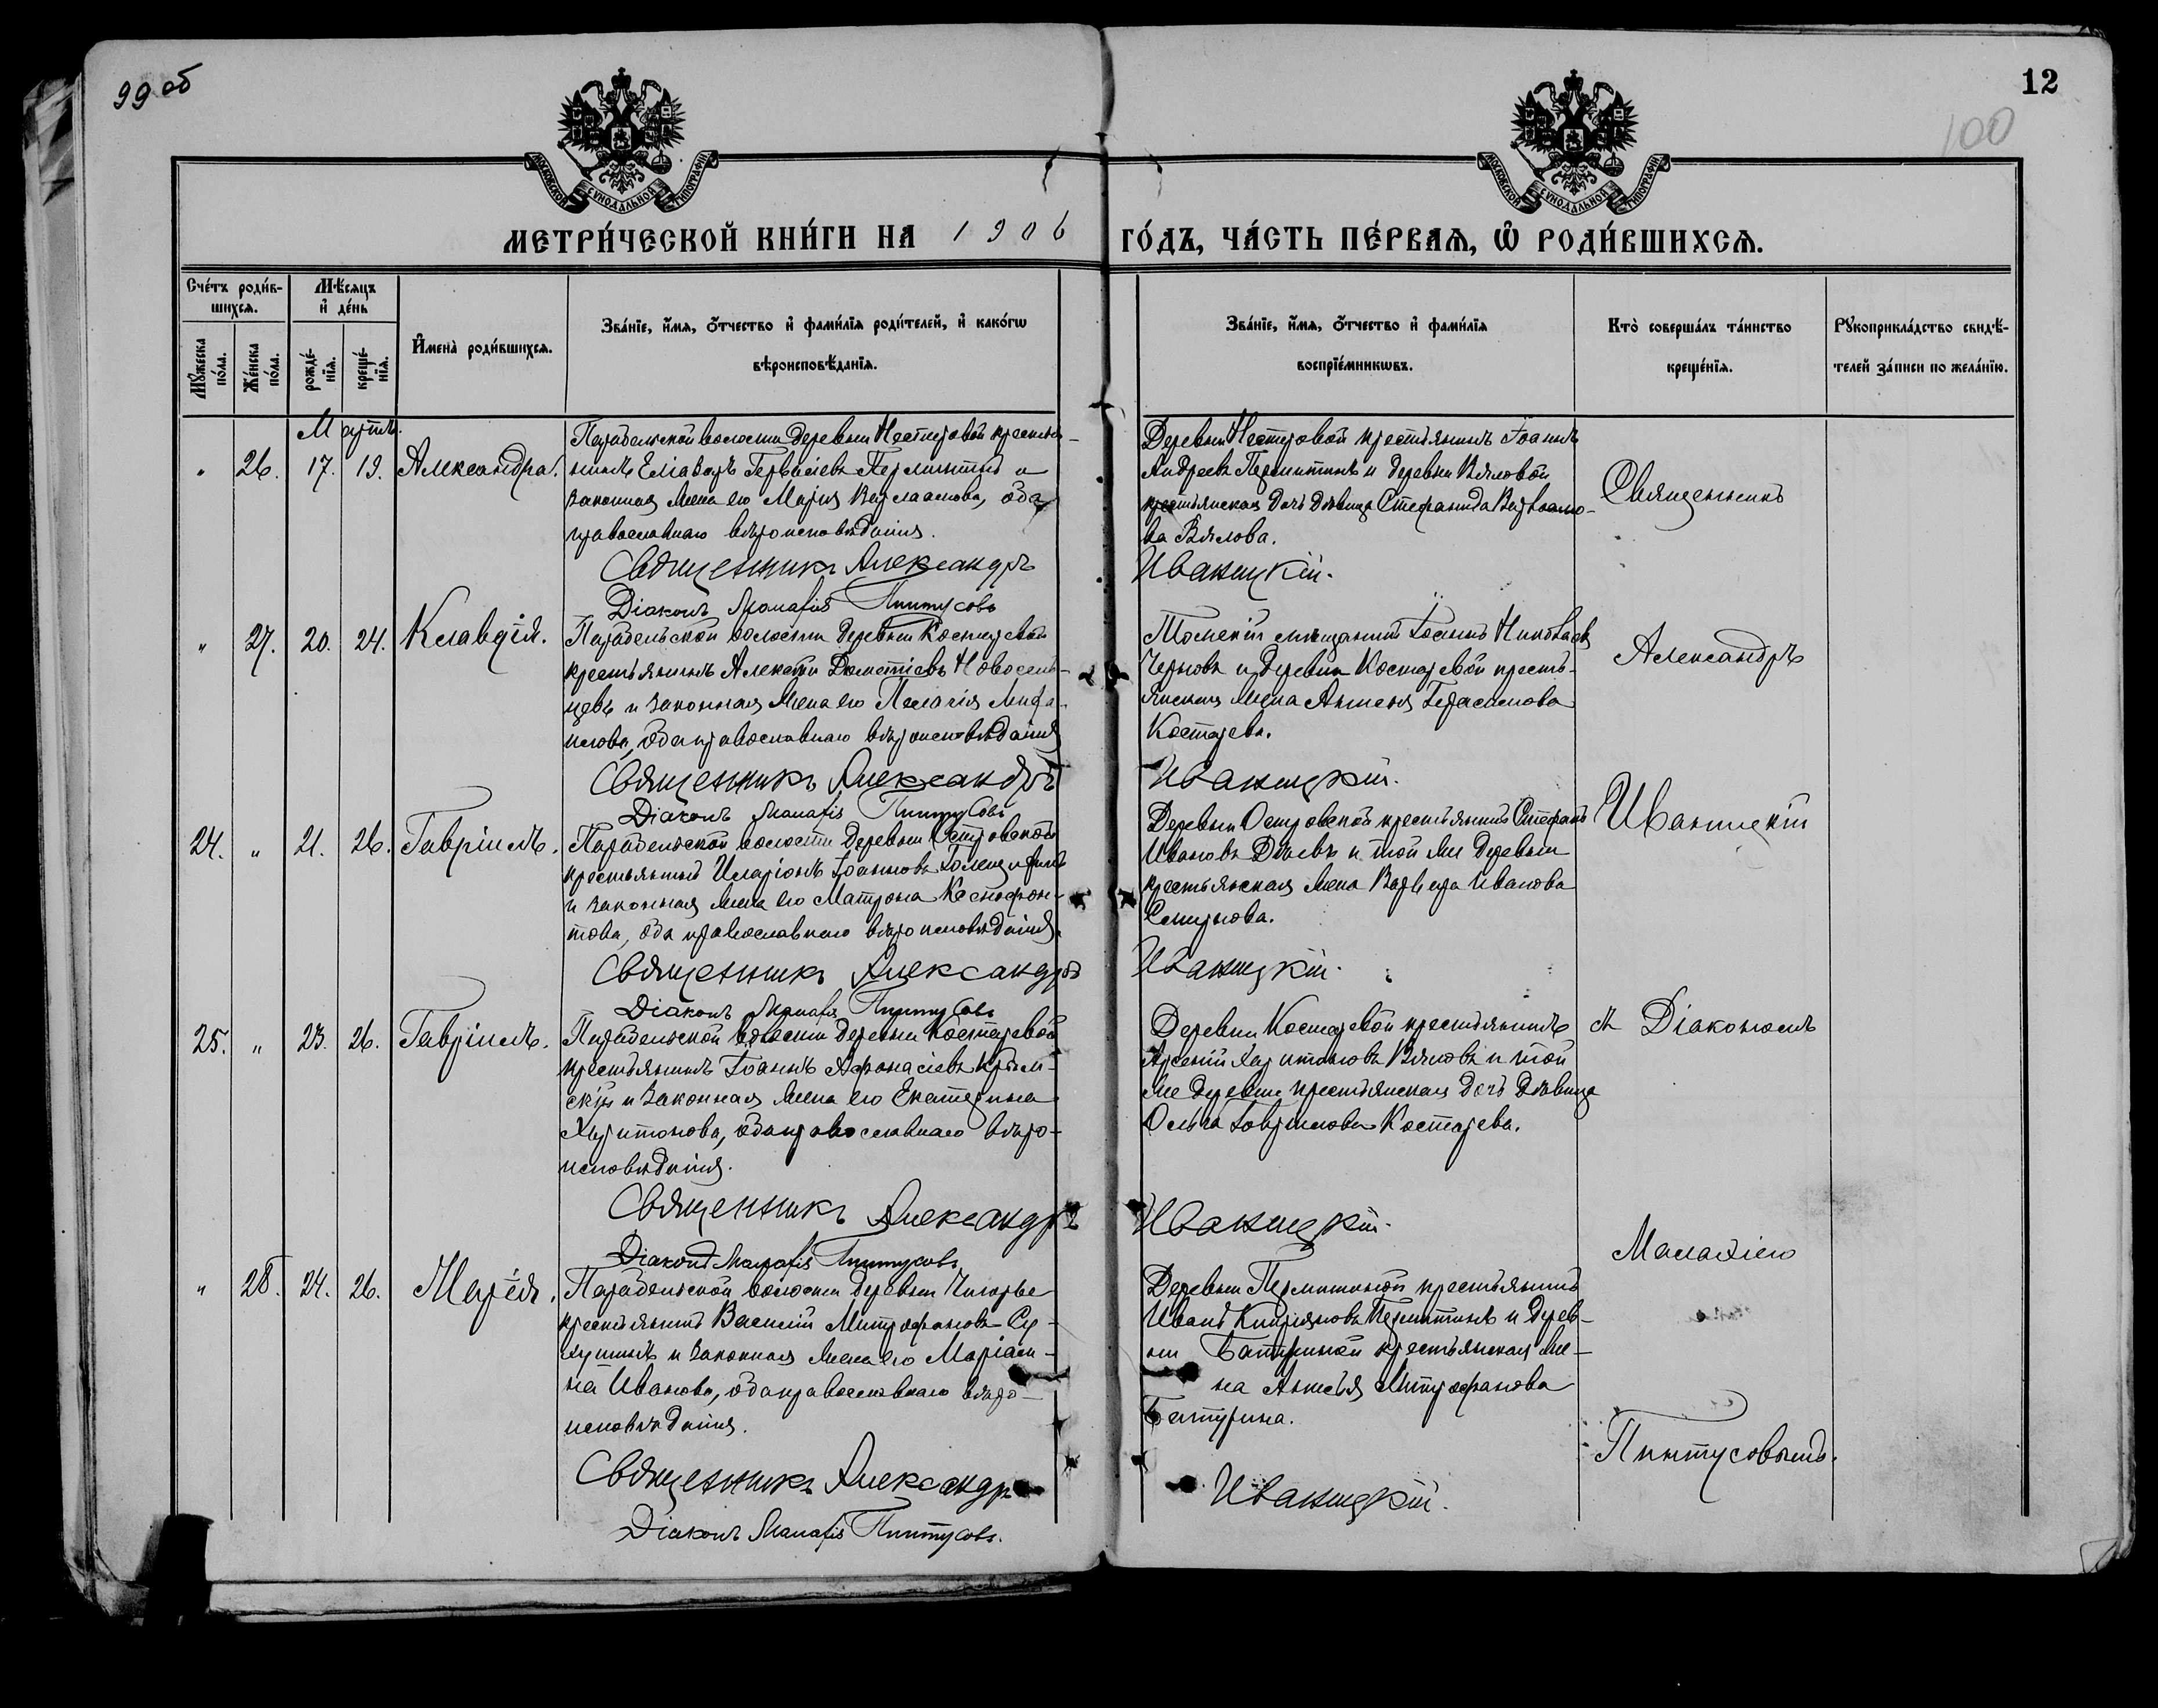 99 об
12
100
МОСКОВСКОЙ СѴНОДАЛЬНОЙ ТИПОГРАФІИ
МОСКОВСКОЙ СѴНОДАЛЬНОЙ ТИПОГРАФІИ
МЕТРИ́ЧЕСКОЙ КНИ́ГИ НА 1906 ГО́ДЪ, ЧА́СТЬ ПЕ́РВАЯ, Ѡ РОДИ́ВШИХСЯ.
Сче́тъ роди́в-
шихся.
Мꙋ́жеска по́ла.
Же́нска по́ла.
Мѣ́сяцъ и҆ де́нь
рожде́-нїя.
креще́-нїя.
И҆мена̀ роди́вшихся.
Зва́нїе, и҆́мя, о҆́тчество и҆ фами́лїя роди́телей, и҆ како́гѡ
вѣроисповѣ́данїя.
Зва́нїе, и҆́мя, о҆́тчество и҆ фами́лїя
воспрїе́мникѡвъ.
Кто̀ соверша́лъ та́инство
креще́нїя.
Рꙋкоприкла́дство свидѣ́-
телей за́писи по жела́нїю.
Мартъ.
„ 26. 17. 19. Александра.
Парабельской волости деревни Нестеровой крестья-
нинъ Еліазаръ Гервасіевъ Пермитинъ и
законная жена его Марія Варлаамова, оба
православнаго вѣроисповѣданія.
Священникъ Александръ Иваницкій.
Діаконъ Малахія Пинтусовъ
Деревни Нестеровой крестьянинъ Іоаннъ
Андреевъ Пермитинъ и деревни Вяловой
крестьянская дочь дѣвица Стефанида Варлаамо-
ва Вялова.
„ 27. 20. 24. Клавдія.
Парабельской волости деревни Костаревой
крестьянинъ Алексѣй Дометіевъ Новосель-
цевъ и законная жена его Пелагія
оба православнаго вѣроисповѣданія
Священникъ Александръ Иваницкій.
Діаконъ Малахія Пинтусовъ
Томскій мѣщанинъ Іоаннъ Николаевъ
Черновъ и деревни Костаревой кресть-
янская жена Герасимова
Костарева.
24. „ 21. 26. Гавріилъ.
Парабельской волости деревни Островской
крестьянинъ Иларіонъ Іоанновъ
и законная жена его Матрона Ксенофон-
това, оба православнаго вѣроисповѣданія.
Священникъ Александръ Иваницкій.
Діаконъ Малахія Пинтусовъ
Деревни Островской крестьянинъ Стефанъ
Ивановъ и той же деревни
крестьянская жена Варвара Иванова
Смирнова.
25. „ 23. 26. Гавріилъ.
Парабельской волости деревни Костаревой
крестьянинъ Іоаннъ Афанасіевъ Крым-
скій и законная жена его Екатерина
Харитонова, оба православнаго вѣро-
исповѣданія.
Священникъ Александръ Иваницкій.
Діаконъ Малахія Пинтусовъ
Деревни Костаревой крестьянинъ
Арсеній Харитоновъ Вяловъ и той
же деревни крестьянская дочь дѣвица
Ольга Гавриилова Костарева.
„ 28. 24. 26. Марія.
Парабельской волости деревни Чигорье
крестьянинъ Василій Митрофановъ Су-
хушинъ и законная жена его Маріам-
на Иванова, оба православнаго вѣро-
исповѣданія.
Священникъ Александръ Иваницкій.
Діаконъ Малахія Пинтусовъ.
Деревни Пермитиной крестьянинъ
Иванъ Кипріяновъ Пермитинъ и дерев-
ни Батуриной крестьянская же-
на Анисья Митрофанова
Батурина.
Священникъ
Александръ
Иваницкій
съ Діакономъ
Малахіею
Пинтусовымъ.